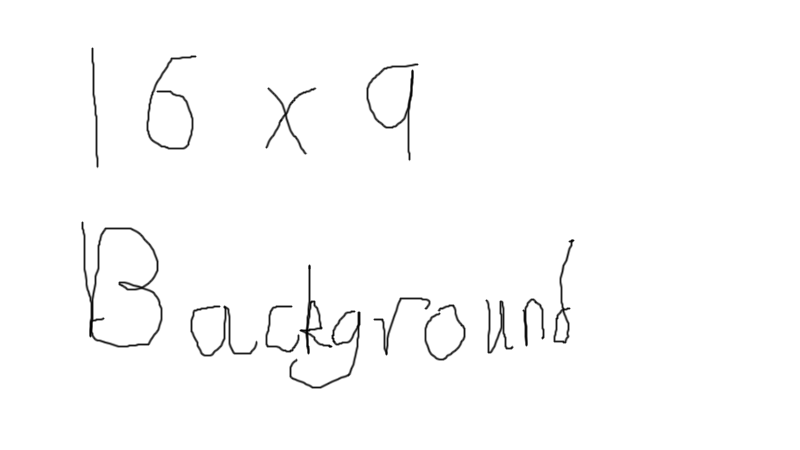 16 x 9
Background